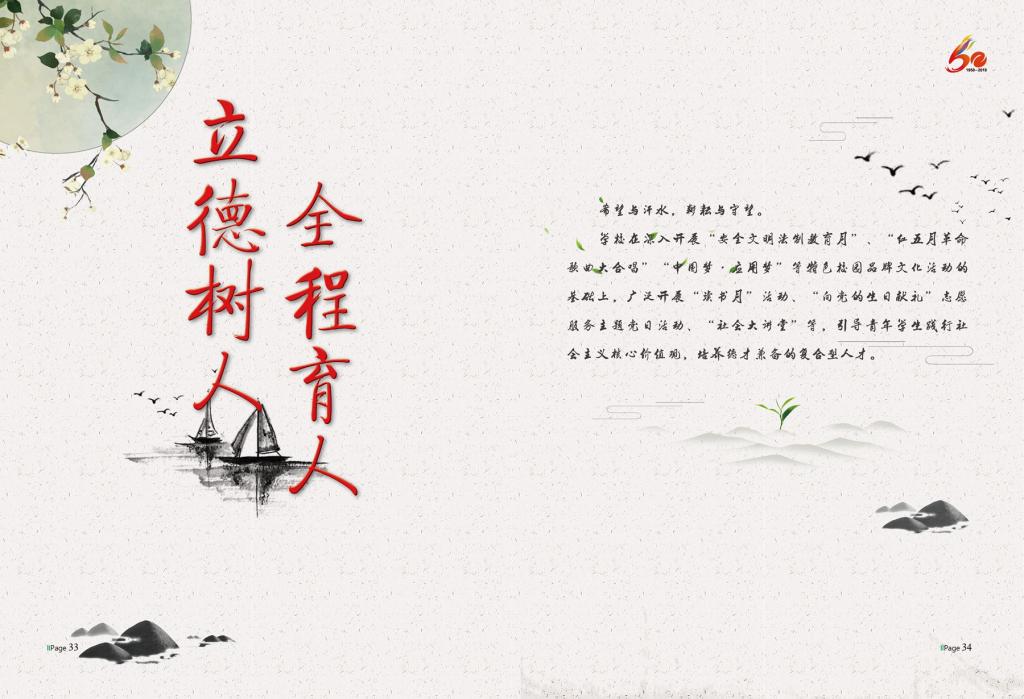 立德树人
全程育人
1958-2018
希望与汗水，耕耘与守望。
学校在深入开展“安全文明法制教育月”、“红五月革命
歌曲大合唱”“中国梦·应用梦”等特色校园品牌文化活动的
基础上，广泛开展“读书月”活动、“向党的生日献礼”志愿
服务主题党日活动、“社会大讲堂”等，引导青年学生践行社
会主义核心价值观，培养德才兼备的复合型人才。
Page 33
Page 34